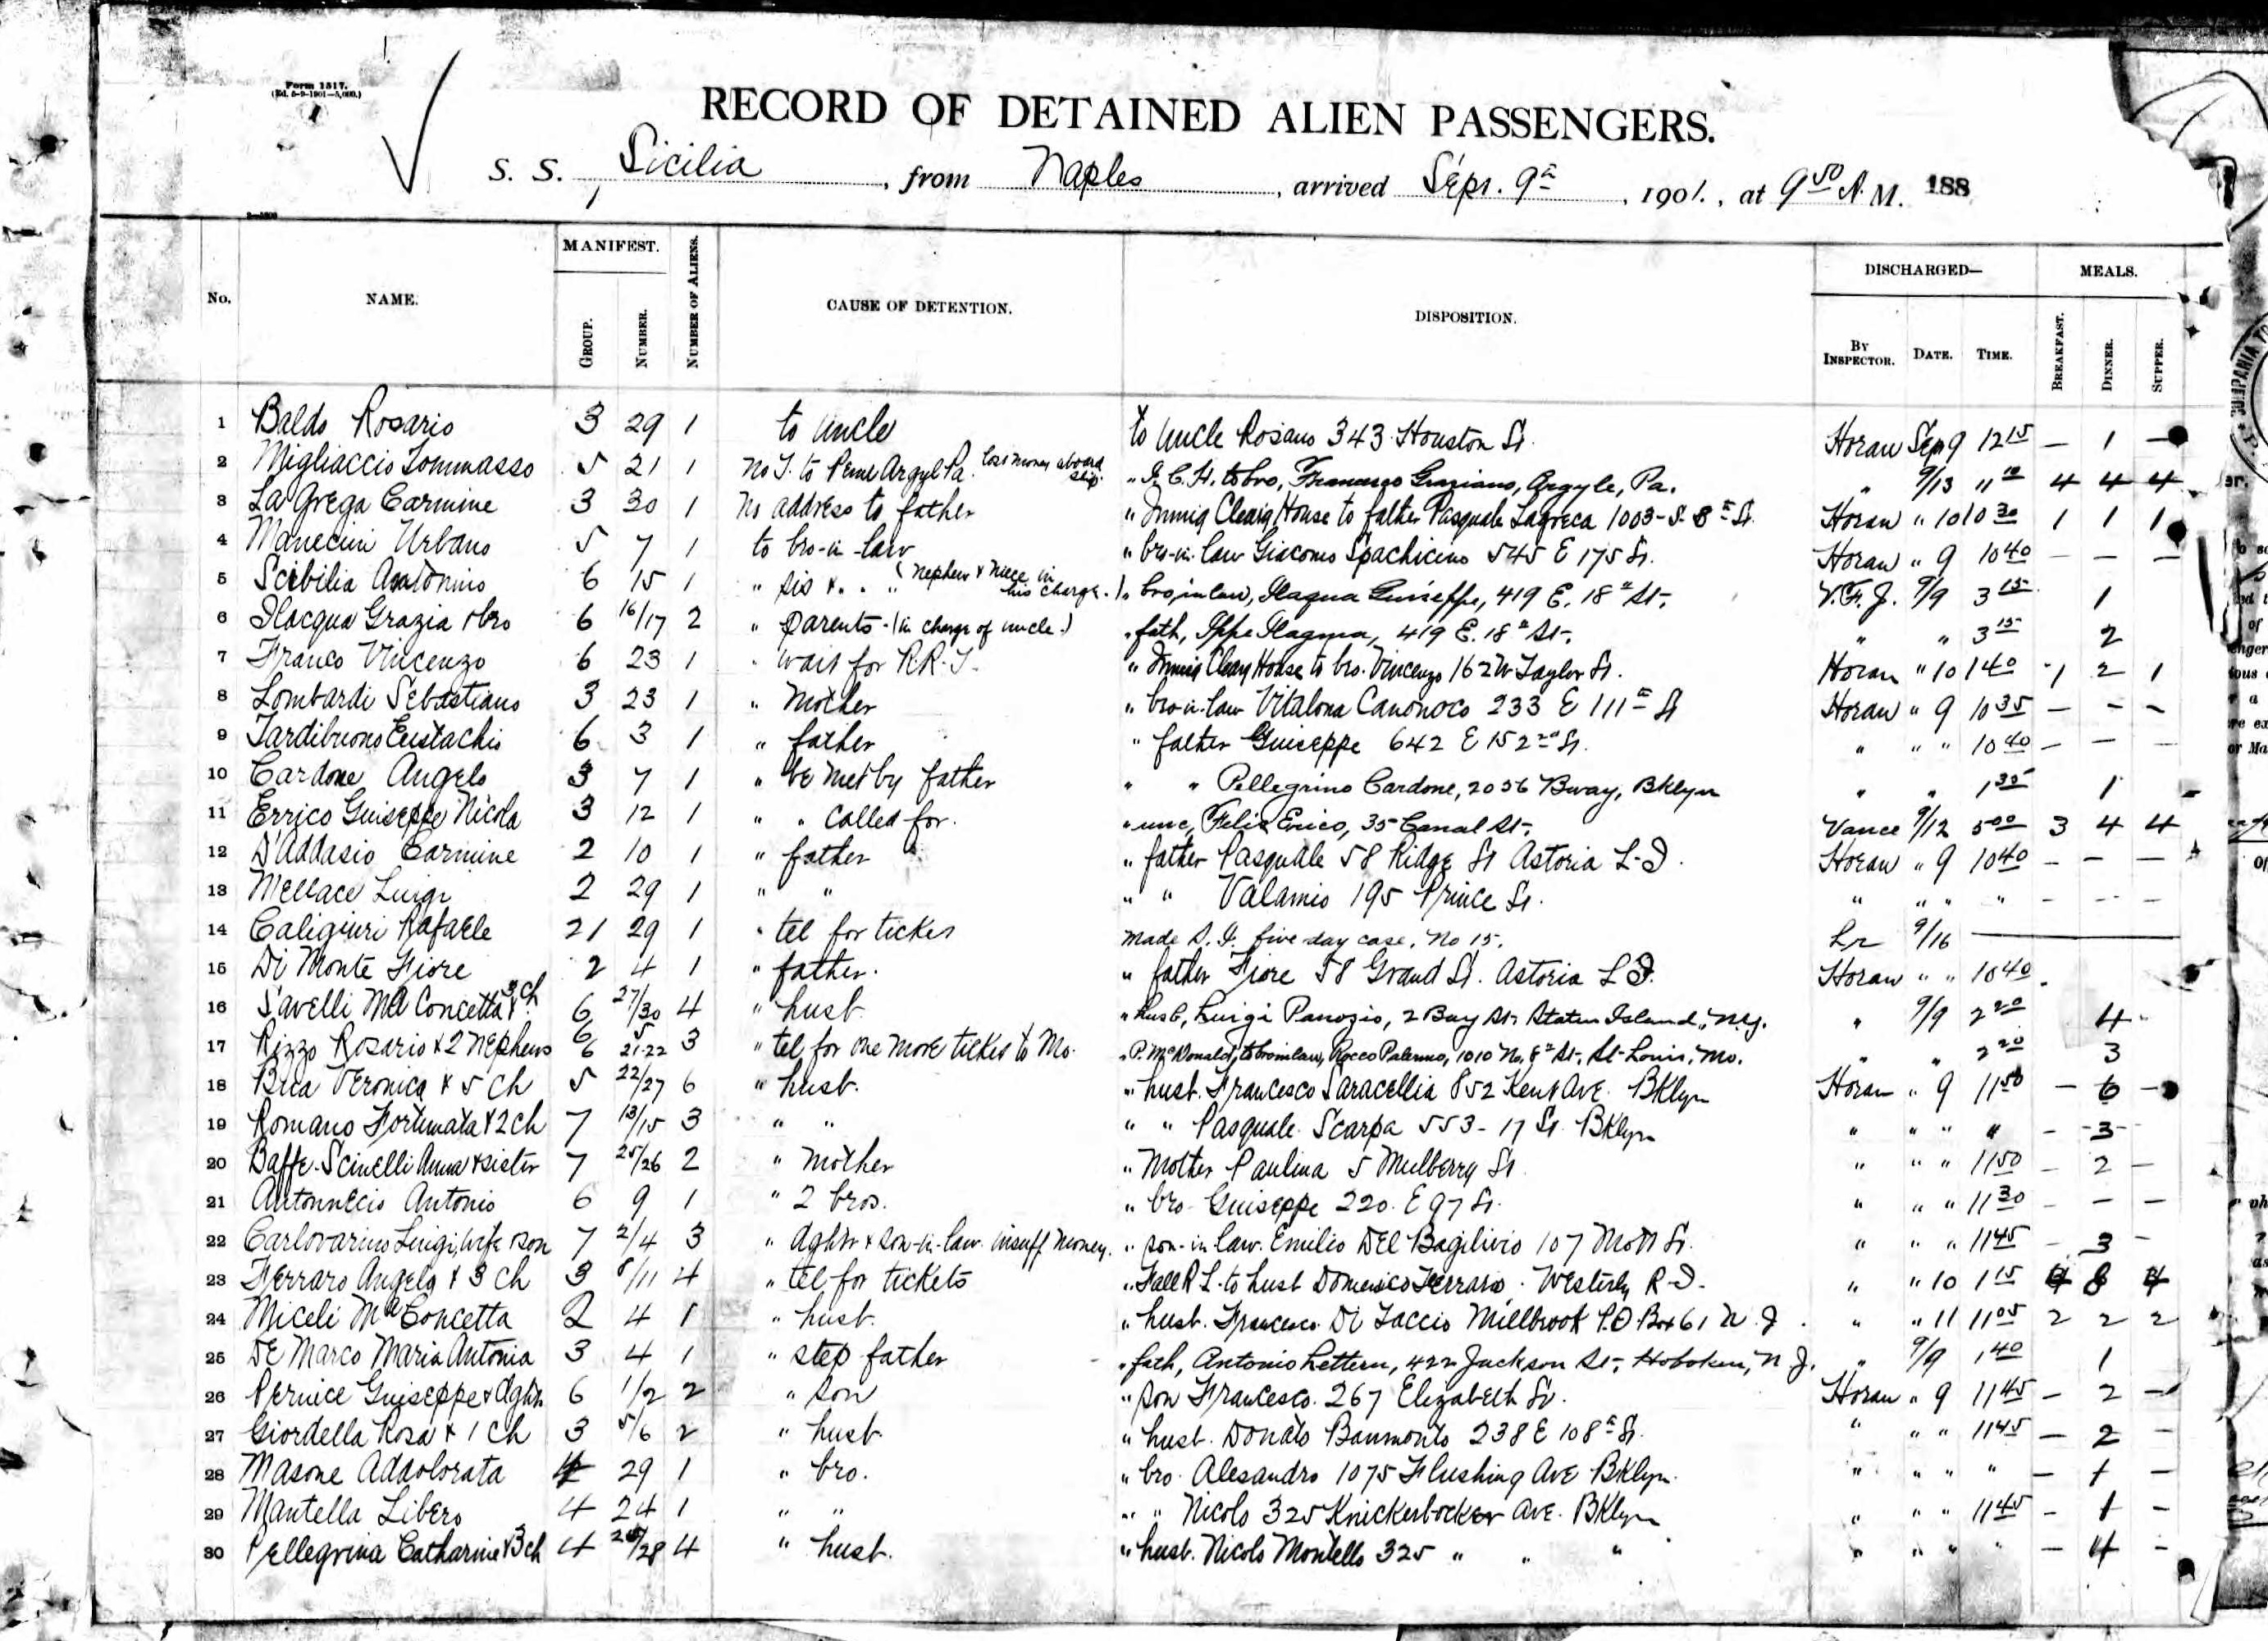 Form 1517.
(Ed. 5-9-1901—5,000.)
RECORD OF DETAINED ALIEN PASSENGERS.
S. S. Sicilia, from Naples, arrived Sept. 9th, 1901., at 9 50 A. M. 188
No. NAME. MANIFEST. GROUP. NUMBER. NUMBER OF ALIENS. CAUSE OF DETENTION. DISPOSITION. DISCHARGED— BY INSPECTOR. DATE. TIME. MEALS. BREAKFAST. DINNER. SUPPER.
1 Baldo Rosario 3 29 1 to uncle to uncle Rosario 343 Houston St. Horan Sep 9 12 15 — 1 —
2 Migliaccio Tommasso 5 21 1 no T. to Pen Argyl Pa. lost money aboard ship. " I. C. H. to bro, Francesco Graziano, Argyle, Pa. " 9/13 " 10 4 4 4
3 La Grega Carmine 3 30 1 No address to father " Immig Clearg House to father Pasquale Lagreca 1003 - S. 8th St. Horan " 10 10 30 1 1 1
4 Manecini Urbano 5 7 1 to bro-in-law " bro-in-law Giacomo Spachicino 545 E 175 St. Horan " 9 10 40 — — —
5 Scibilia Antonino 6 15 1 " sis & " " (Nephew & Niece in his charge.) " bro, in law, Ilaqua Guiseppe, 419 E. 18th St. V.F.J. 9/9 3 15 1
6 Ilacqua Grazia & bro 6 16/17 2 " parents - (in charge of uncle.) " fath, Gppe Ilaqua, 419 E. 18th St. " " 3 15 2
7 Franco Vincenzo 6 23 1 " wait for R.R. T. " Immig Clearg House to bro. Vincenzo 162 W Taylor St. Horan " 10 1 40 1 2 1
8 Lombardi Sebastiano 3 23 1 " Mother " bro-in-law Vitalona Canonoco 233 E 111th St Horan " 9 10 35 — — —
9 Tardibuono Eustachio 6 3 1 " father " father Guiseppe 642 E 152nd St. " " " 10 40 — — —
10 Cardone Angelo 3 7 1 " be met by father " " Pellegrino Cardone, 2056 Bway, Bklyn " " 1 35 1
11 Errico Guiseppe Nicola 3 12 1 " " called for. " unc, Felix Errico, 35 Canal St. Vance 9/12 5 00 3 4 4
12 D'Addasio Carmine 2 10 1 " father " father Pasquale 58 Ridge St Astoria L-I. Horan " 9 10 40 — — —
13 Mellace Luigi 2 29 1 " " " " Valamio 195 Prince St. " " " " — — —
14 Caligiuri Rafaele 21 29 1 " tel for ticket made S. I. five day case, No 15. Lr 9/16 —
15 Di Monte Fiore 2 4 1 " father. " father Fiore 58 Grand St. Astoria L I. Horan " " 10 40
16 Savelli Ma Concetta & 3 ch 6 27/30 4 " husb. " husb, Luigi Panozio, 2 Bay St. Staten Island, N.Y. " 9/9 2 20 4
17 Rizzo Rosario & 2 Nephews 6 5 6 21-22 3 " tel for one more ticket to Mo. " P. McDonald, to broinlaw, Rocco Palermo, 1010 No. 8th St., St. Louis, Mo. " " 2 20 3
18 Bua Veronica & 5 ch 5 22/27 6 " husb. " husb. Francesco Saracellia 852 Kent Ave. Bklyn Horan " 9 11 50 — 6 —
19 Romano Fortunata & 2 ch 7 13/15 3 " " " " Pasquale Scarpa 553 - 17 St. Bklyn " " " " — 3 —
20 Baffe-Scinelli Anna & sister 7 25/26 2 " Mother " Mother Paulina 5 Mulberry St " " " 11 50 — 2 —
21 Antonnecio Antonio 6 9 1 " 2 bros. " bro - Guiseppe 220. E 97 St. " " " 11 30 — — —
22 Carlovarino Luigi, wife & son 7 2/4 3 " dghtr & son-in-law. insuff money. " son-in-law. Emilio Del Bagilivio 107 Mott St. " " " 11 45 — 3 —
23 Ferraro Angela & 3 ch 3 8/11 4 " tel for tickets " Fall R L. to husb Domenico Ferraro. Westerly R-I. " " 10 1 15 4 8 4
24 Miceli Ma Concetta 2 4 1 " husb. " husb. Francesco Di Taccio Millbrook P.O Box 61 N. J. " " 11 11 05 2 2 2
25 De Marco Maria Antonia 3 4 1 " step father " fath, Antonio Lettern, 422 Jackson St., Hoboken, N. J. " 9/9 1 40 1
26 Pernice Guiseppe & dghtr 6 1/2 2 " son " son Francesco. 267 Elizabeth St. Horan " 9 11 45 — 2 —
27 Giordella Rosa & 1 ch 3 5/6 2 " husb. " husb. Donato Baumonto 238 E 108th St. " " " 11 45 — 2 —
28 Masone Addolorata 4 29 1 " bro. " bro. Alesandro 1075 Flushing Ave Bklyn. " " " " — 1 —
29 Mantella Libero 4 24 1 " " " " Nicolo 325 Knickerbocker Ave. Bklyn " " " 11 45 — 1 —
30 Pellegrina Catharine & 3 ch 4 25/28 4 " husb. " husb. Nicolo Montello 325 " " " " " " " — 4 —